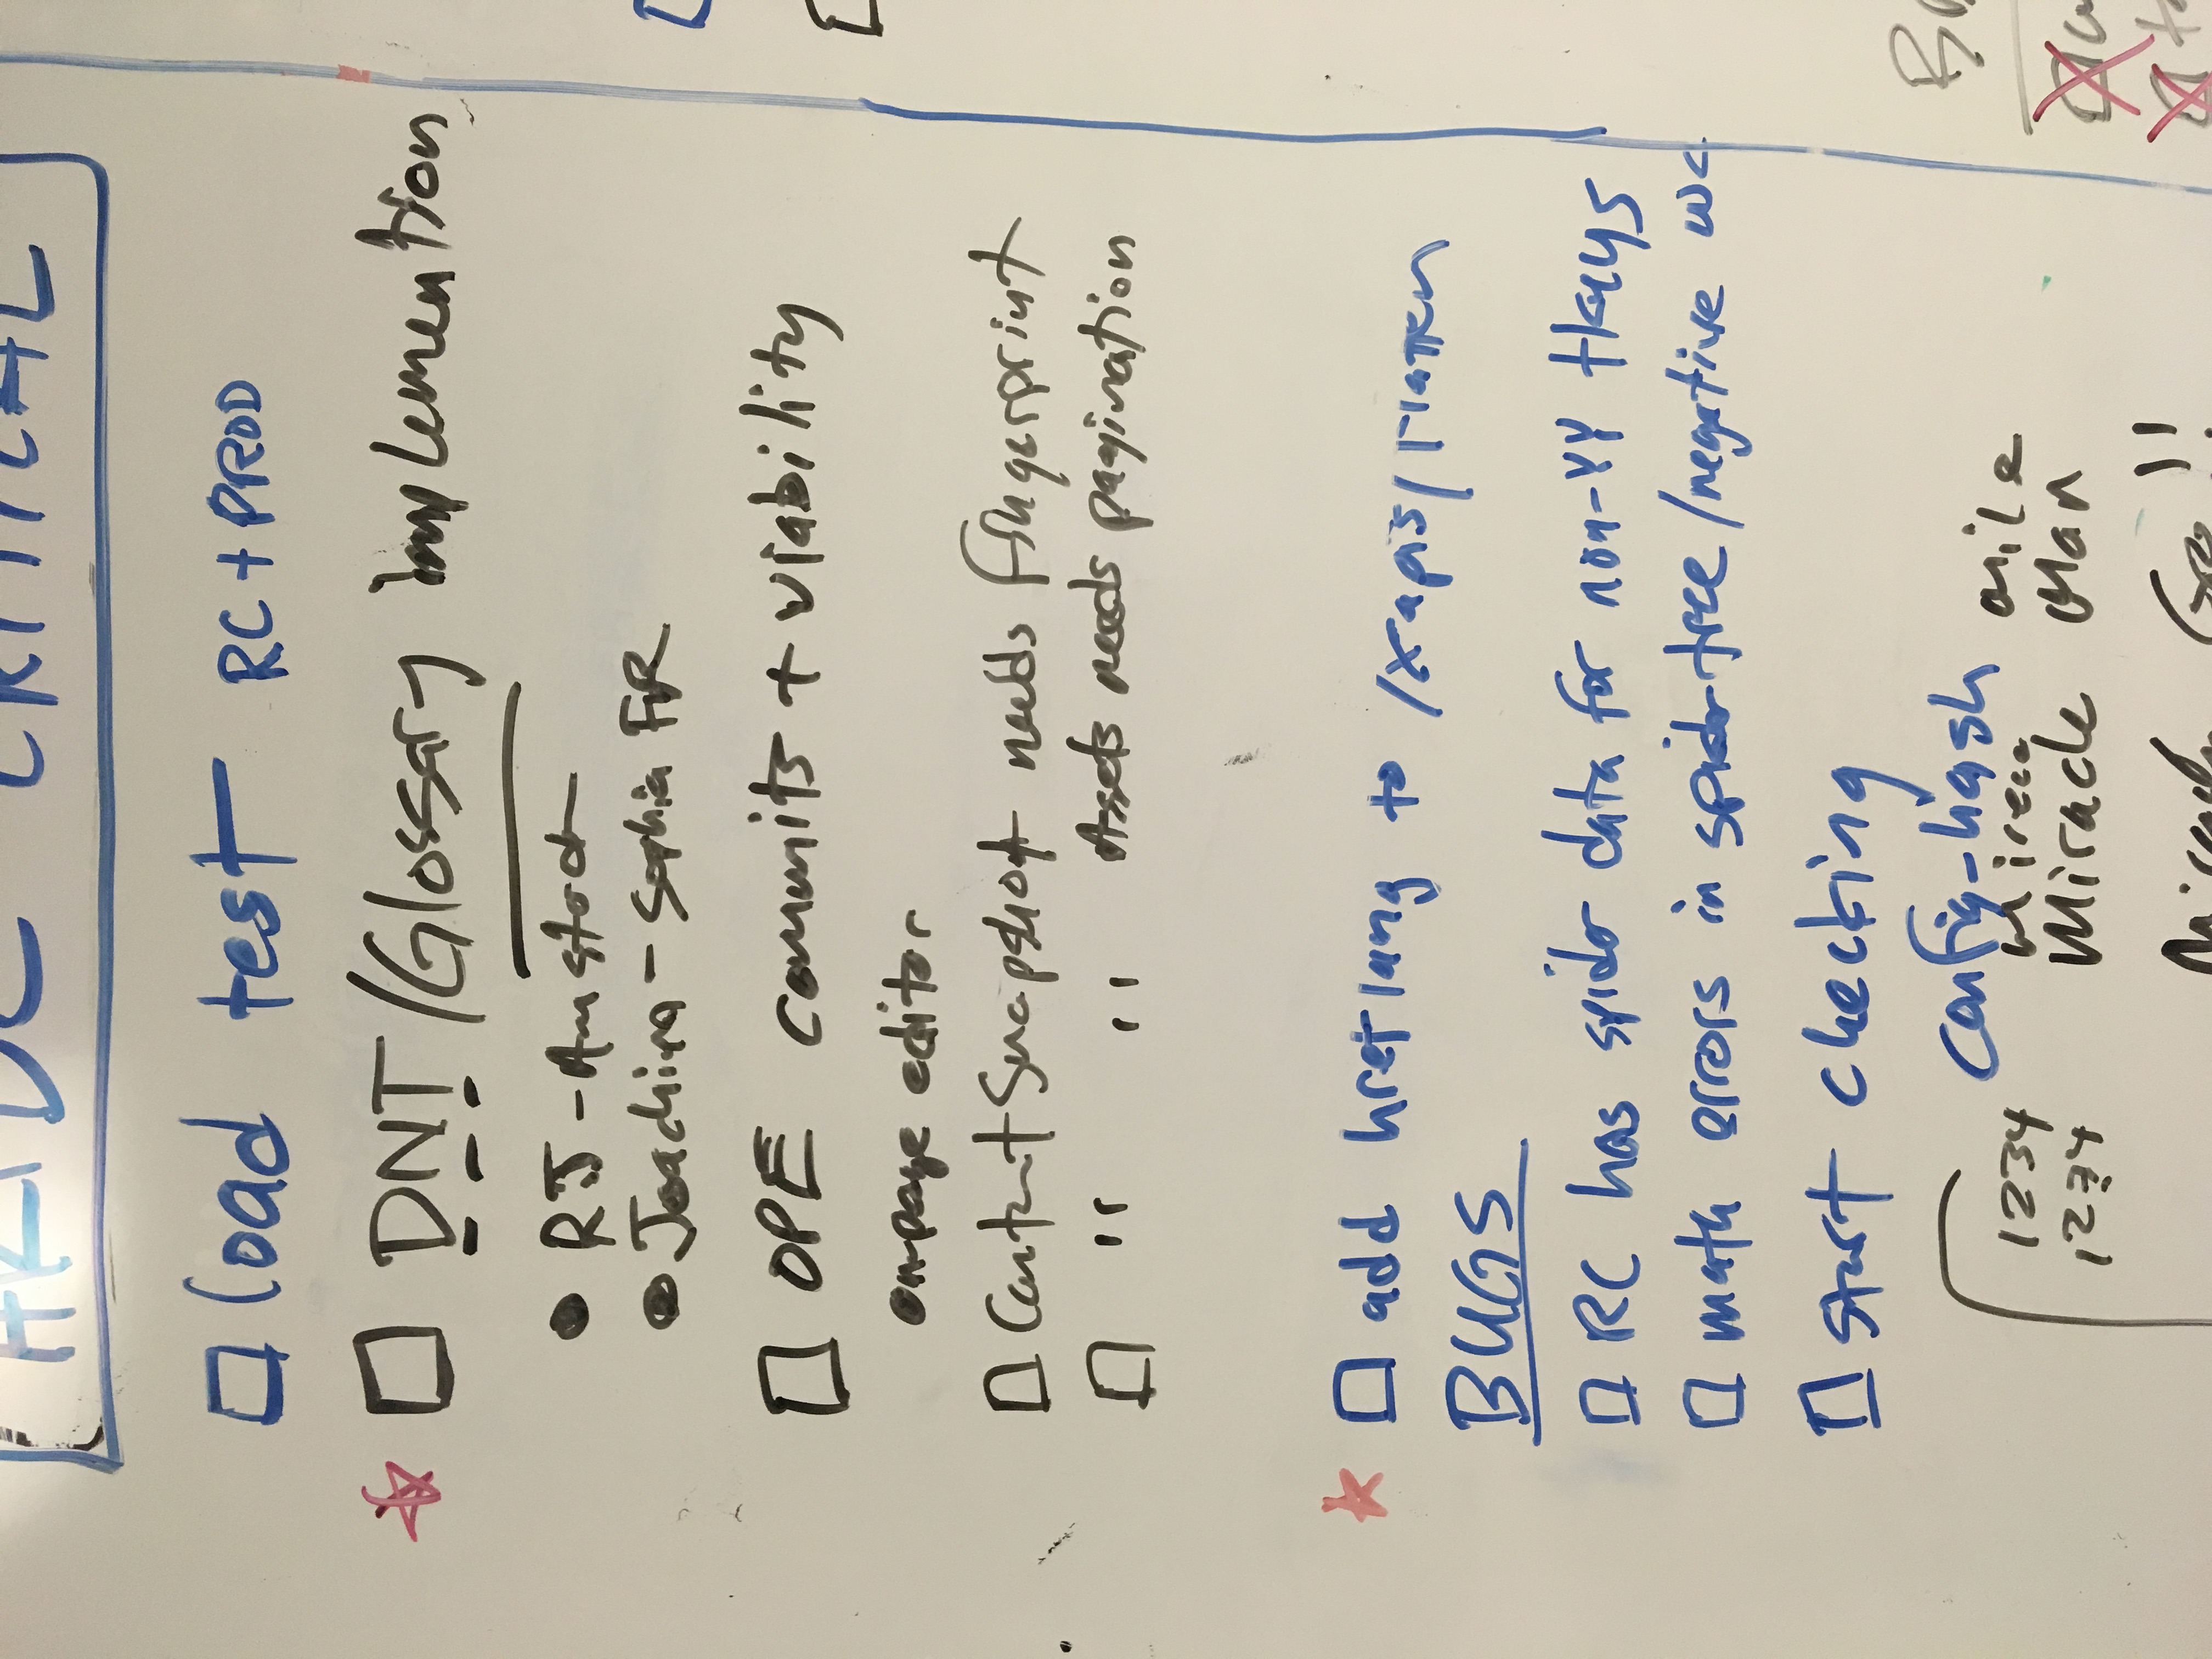 CRITICAL
load test RC + PROD
DNT/Glossary implementation
RJ - Amstod
Joachim - Sophia FR
OPE commits + viability
onpage editor
Content Snapshot needs fingerprint
" " Assets needs pagination
add hreflang to /xapis/
BUGS
RC has spider data for non-yy tkeys
math errors in spider-tree/negative wc
start checking
config-hash
1234 mile
1234 Miracle Man